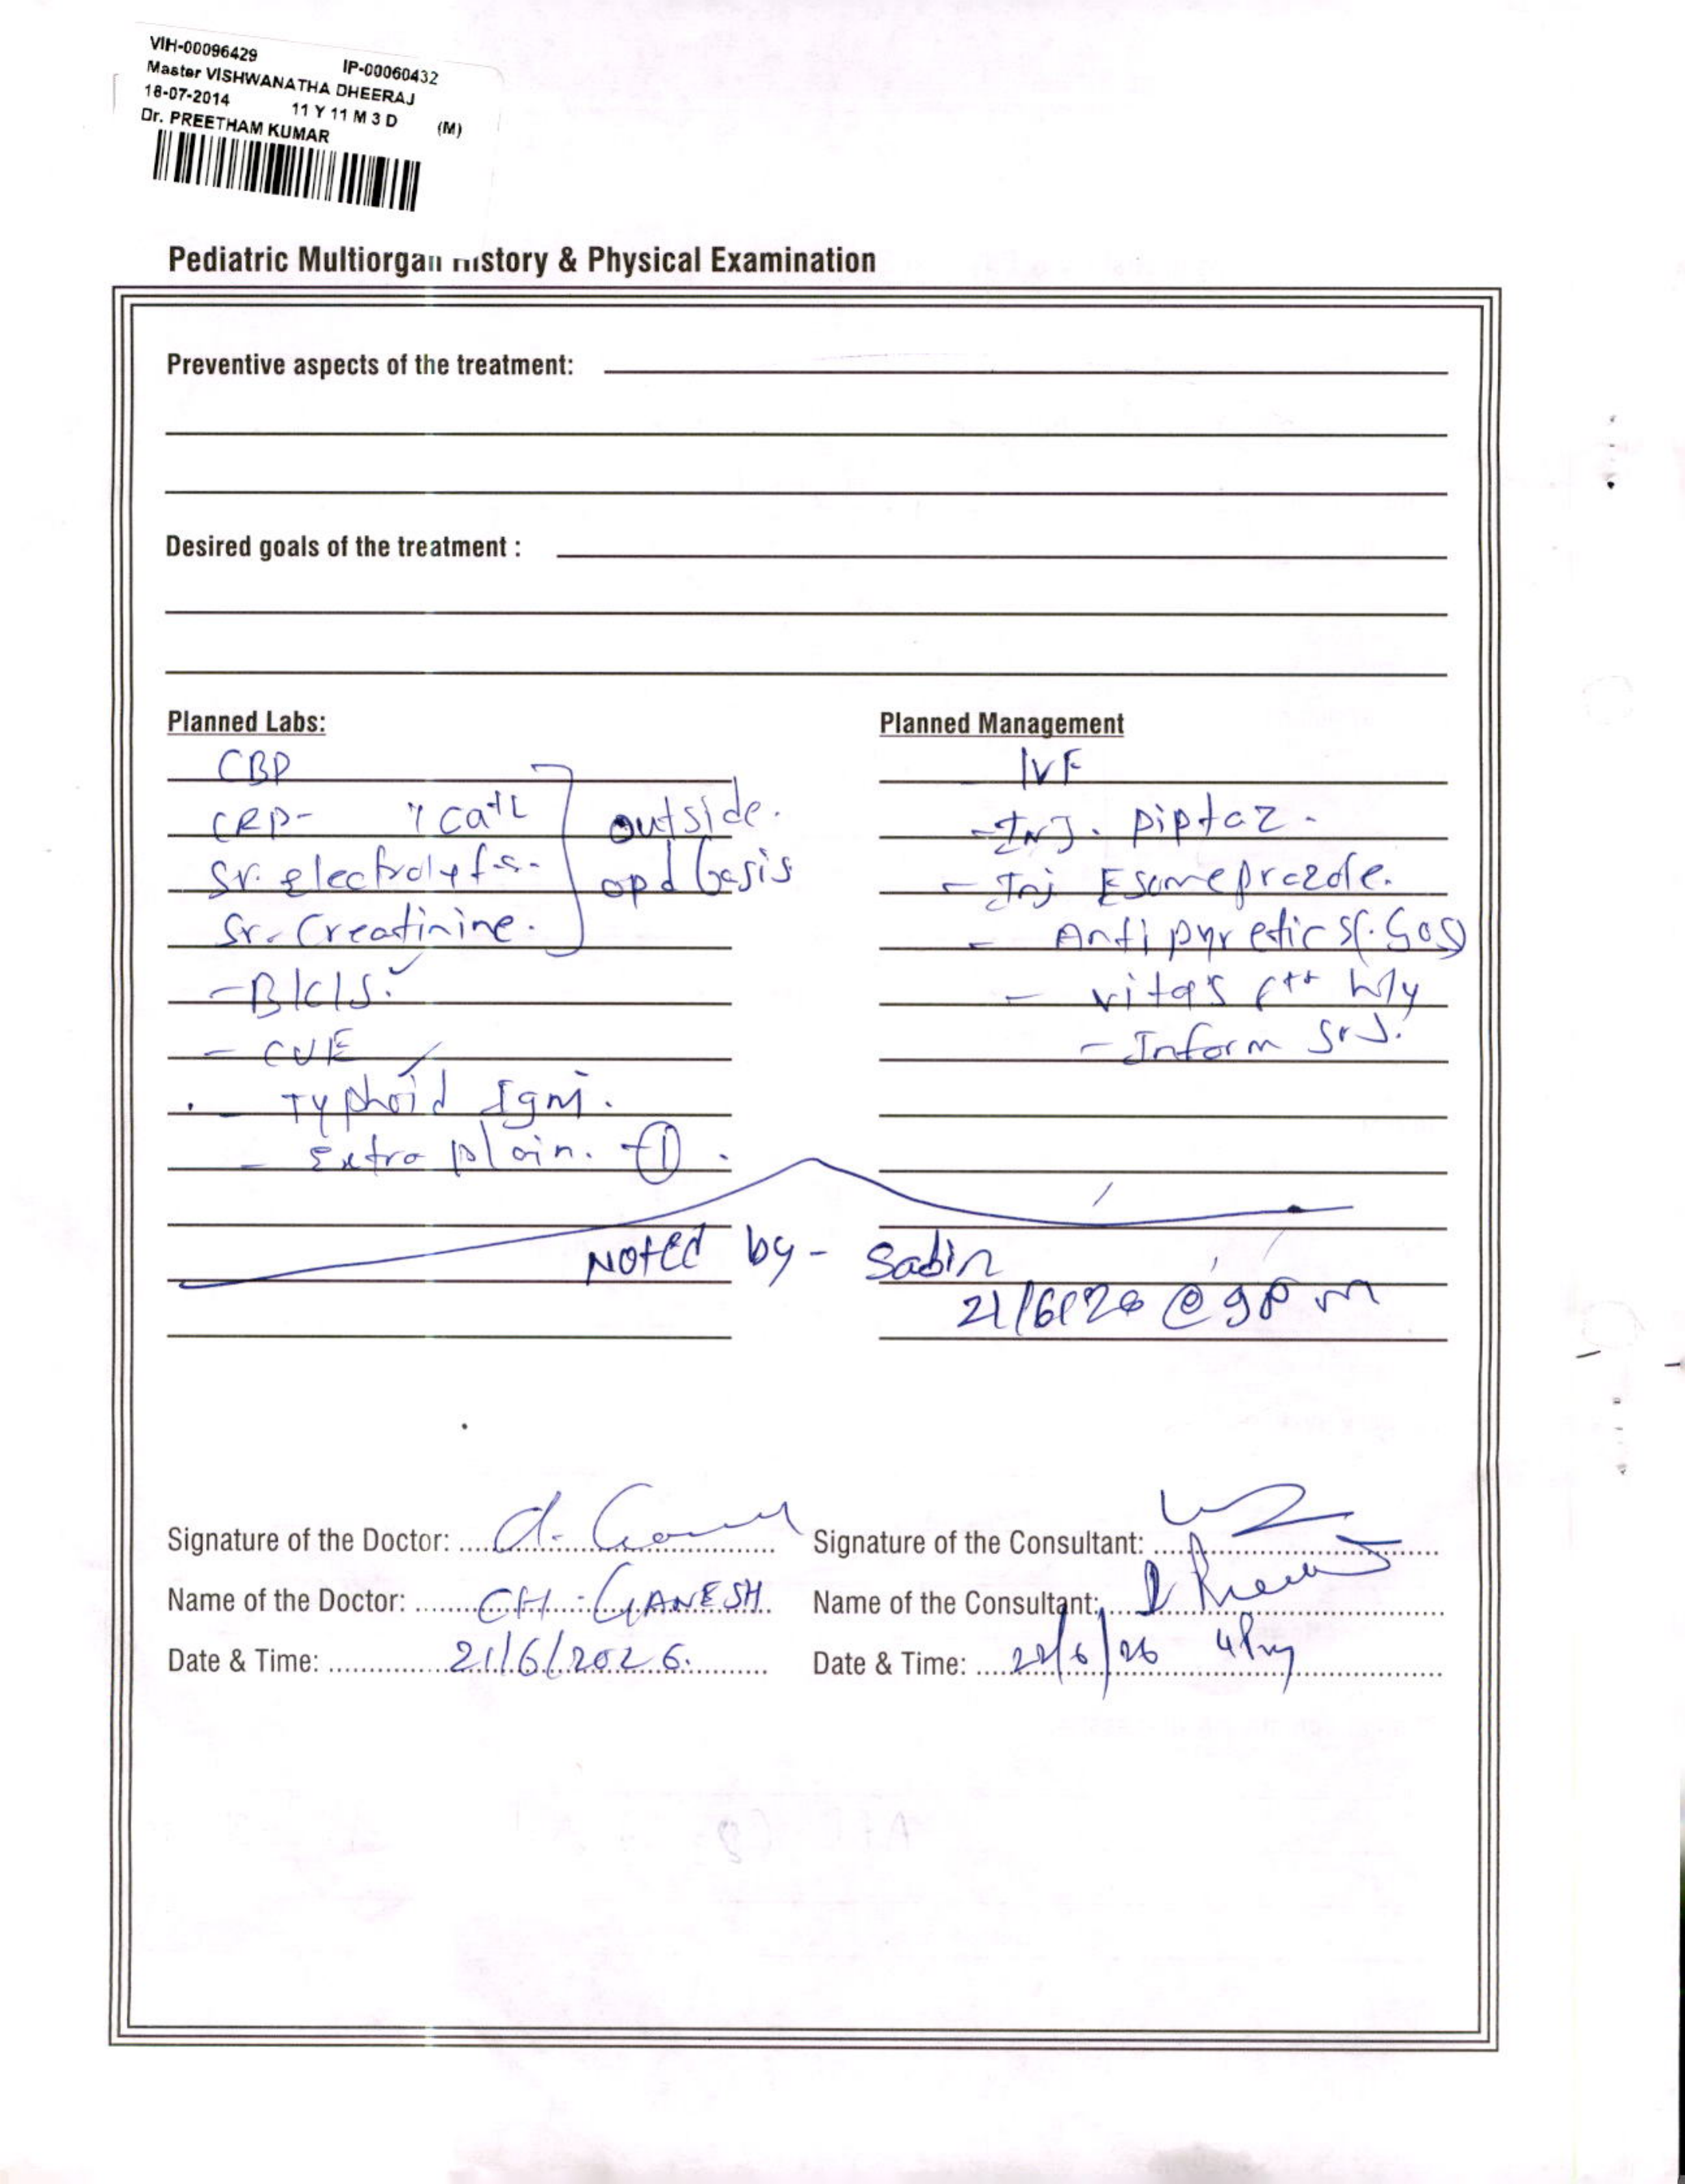 VIH-00096429 IP-00060432
Master VISHWANATHA DHEERAJ
18-07-2014 11 Y 11 M 3 D (M)
Dr. PREETHAM KUMAR
Pediatric Multiorgan History & Physical Examination
Preventive aspects of the treatment:
Desired goals of the treatment :
Planned Labs:
CBP
CRP-
Sr. electrolytes.
Sr. Creatinine.
outside.
opd basis
- B/C/S.
- CUE
- Typhoid IgM.
- Extra plain. - 1.
Planned Management
IVF
- Inj. piptaz.
- Inj Esomeprazole.
- Antipyretics
- vitals hly
- Inform
Noted by - Sabin
@ 9pm
Signature of the Doctor:
Name of the Doctor: CH. GANESH
Date & Time: 21/6/2026.
Signature of the Consultant:
Name of the Consultant:
Date & Time: 22/6/26 4pm